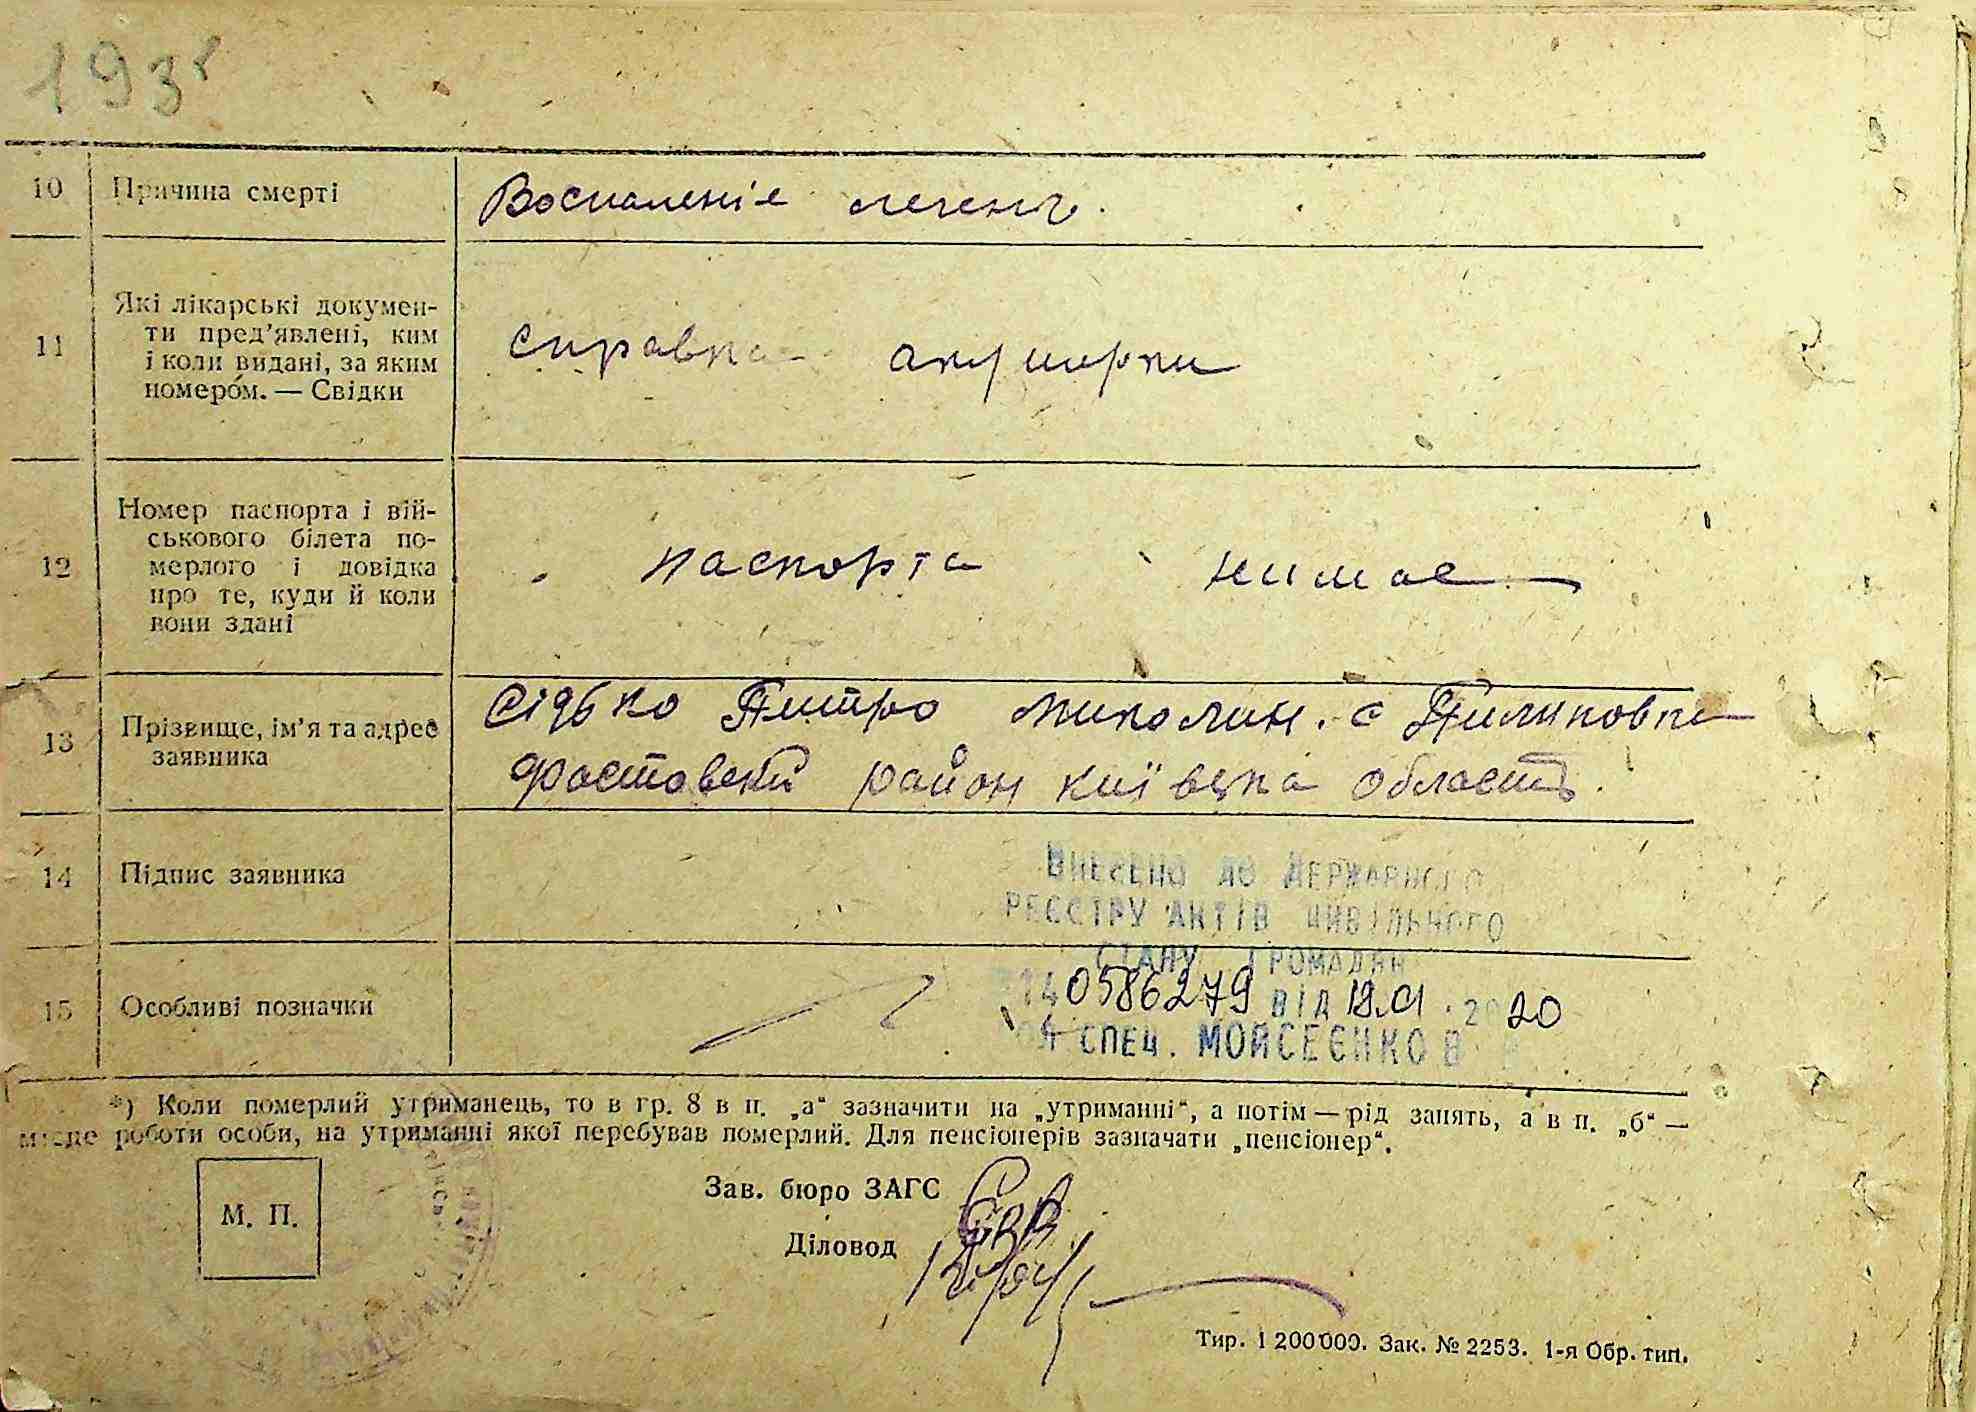 193
10 Причина смерті Воспаленіе легень.
11 Які лікарські докумен-
ти пред'явлені, ким
і коли видані, за яким
номером. — Свідки
справка акушорки
12 Номер паспорта і вій-
ськового білета по-
мерлого і довідка
про те, куди й коли
вони здані
паспорта нимае
13 Прізвище, ім'я та адрес
заявника
Сідько Питро Миколин. с Пилиповка
Фастовский район Київска область.
14 Підпис заявника
15 Особливі позначки
ВНЕСЕНО ДО ДЕРЖАВНОГО
РЕЄСТРУ АКТІВ ЦИВІЛЬНОГО
СТАНУ ГРОМАДЯН
0586279 ВІД 18.01.2020
СПЕЦ. МОЙСЕЄНКО В
*) Коли померлий утриманець, то в гр. 8 в п. „а“ зазначити на „утриманні“, а потім — рід занять, а в п. „б“ —
місце роботи особи, на утриманні якої перебував померлий. Для пенсіонерів зазначати „пенсіонер“.
М. П.
Зав. бюро ЗАГС
Діловод
Тир. 1 200 000. Зак. № 2253. 1-я Обр. тип.